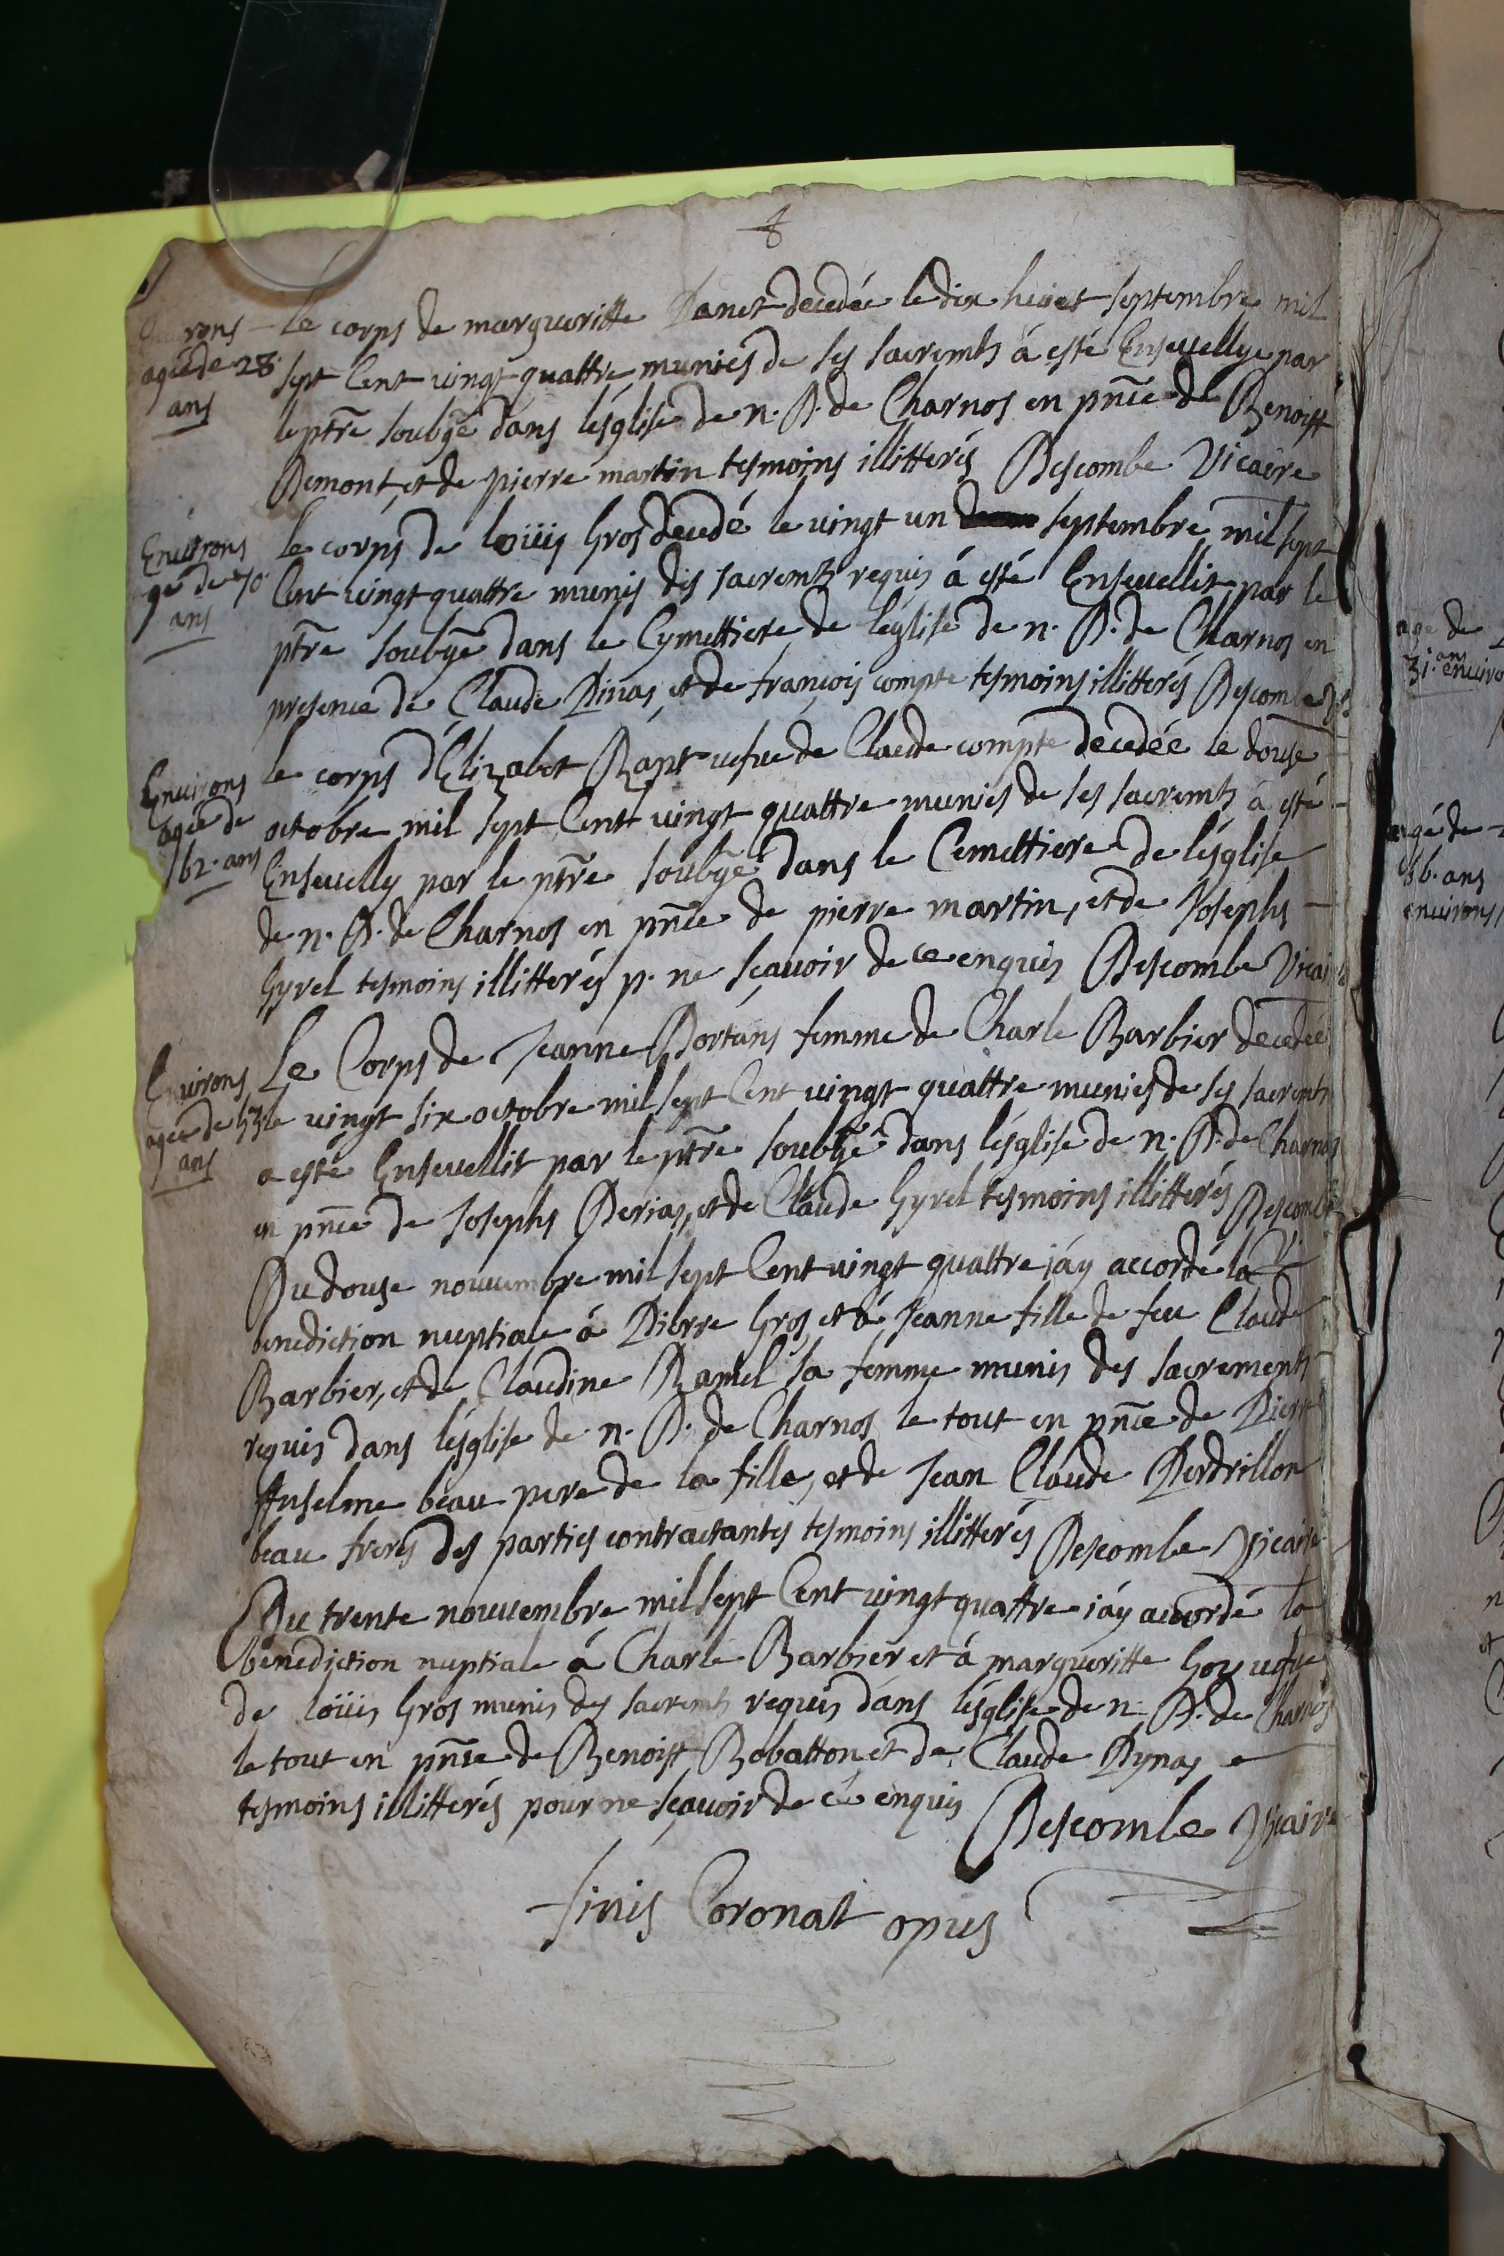 8
Environs
agée de 28
ans
le corps de margueritte Danet decedée le dix huict septembre mil
sept Cent vingt quattre munies de ses sacremts á esté Ensevellye par
le ptre soubgé dans léglise de n. D. de Charnos en pnce de Benoist
Demont et de pierre martin tesmoins illitterés Descombe Vicaire
Environs
gé de 70
ans
le corps de loüis Gros decedé le vingt un septembre mil sept
Cent vingt quattre munis des sacremts requis á esté Ensevellit par le
ptre soubgé dans le Cymettiere de léglise de n. D. de Charnos en
presence de Claude Dinas et de françois compte tesmoins illitterés Descombe
Environs
agée de
62. ans
le corps d'Elizabet Rapt vefve de Claude compte decedée le douse
octobre mil sept Cent vingt quattre munies de ses sacremts á esté
Ensevelly par le ptre soubgé dans le Cemettiere de l'ésglise
de n. D. de Charnos en pnce de pierre martin, et de Josephs
Gyrel tesmoins illitterés p. ne sçavoir de ce enquis Descombe Vicai
Environs
agée de
ans
Le Corps de Jeanne Dortans femme de Charle Barbier decedée
le vingt six octobre mil sept Cent vingt quattre munies de ses sacremts
a esté Ensevellit par le ptre soubgé dans lésglise de n. D. de Charnos
en pnce de Josephs Derias, et de Claude Gyrel tesmoins illitterés Descombe
Du douse nouvembre mil sept Cent vingt quattre j'áy accordé la
benediction nuptiale á Pierre Gros, et á Jeanne fille de feu Claude
Barbier, et de Claudine Ramel sa femme munis des sacrements
requis dans lésglise de n. D. de Charnos le tout en pnce de Pierre
Anselme beau pere de la fille, et de Jean Claude Perdrillon
beau freres des parties contractantes tesmoins illitterés Descombe Vicaire
Du trente nouvembre mil sept Cent vingt quattre j'áy accordé la
benediction nuptiale á Charle Barbier et á margueritte Goy vefve
de loüis Gros munis des sacremts requis dans lésglise de n. D. de Charnos
le tout en pnce de Benoist Bobatton et de Claude Dynas
tesmoins illitterés pour ne sçavoir de cé enquis Descombe Vicaire
finis Coronat opus
age de
31. ans environ
agé de
66. ans
environs